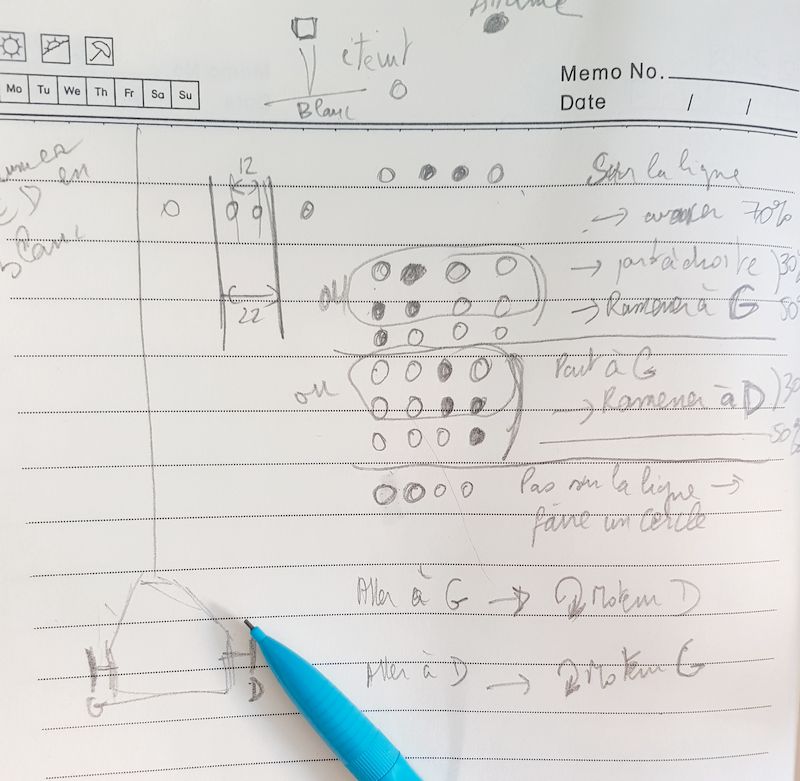 éteint
Blanc
Memo No.
Date / /
Mo Tu We Th Fr Sa Su
en
12
22
Sur la ligne
→ avancer 70%
→ part à droite ) 30%
ou → Ramener à G 50%
Part à G
ou → Ramener à D ) 30
50%
Pas sur la ligne →
faire un cercle
Aller à G → Moteur D
Aller à D → Moteur G
G D